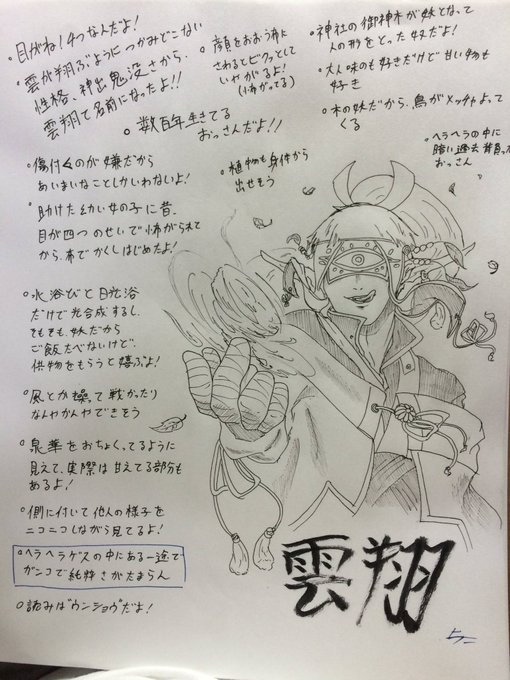 ◦目がね！4つなんだよ！
◦雲が翔ぶようにつかみどこない
性格、神出鬼没さから、
雲翔て名前になったよ！！
◦顔をおおう布に
さわれるとビクっとして
いやがるよ！
(怖がってる)
◦神社の御神木が妖となって
人の形をとった奴だよ！
◦大人味のも好きだけど甘い物も
好き
◦木の妖だから、鳥がメッチャよって
くる
◦ヘラヘラの中に
暗い過去背負った
おっさん
◦数百年生きてる
おっさんだよ！！
◦植物も身体から
出せそう
◦傷付くのが嫌だから
あいまいなことしかいわないよ！
◦助けた幼い女の子に昔、
目が四つのせいで怖がられて
から、布でかくしはじめたよ！
◦水浴びと日光浴
だけで光合成するし、
そもそも、妖だから
ご飯たべないけど、
供物をもらうと嬉ぶよ！
◦風とか操って戦かったり
なんやかんやできそう
◦泉華をおちょくってるように
見えて、実際は甘えてる部分も
あるよ！
◦側に付いて他人の様子を
ニコニコしながら見てるよ！
◦ヘラヘラゲスの中にある一途で
ガンコで純粋さがたまらん
◦読みは"ウンショウ"だよ！
雲翔